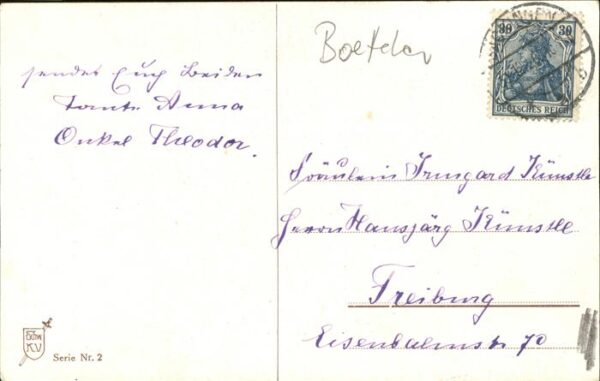 sendet Euch Beiden
Tante Anna
Onkel Theodor.
Serie Nr. 2
30 30
DEUTSCHES REICH
Fräulein Irmgard Künstle
Herrn Hansjörg Künstle
Freiburg
Eisenbahnstr. 70